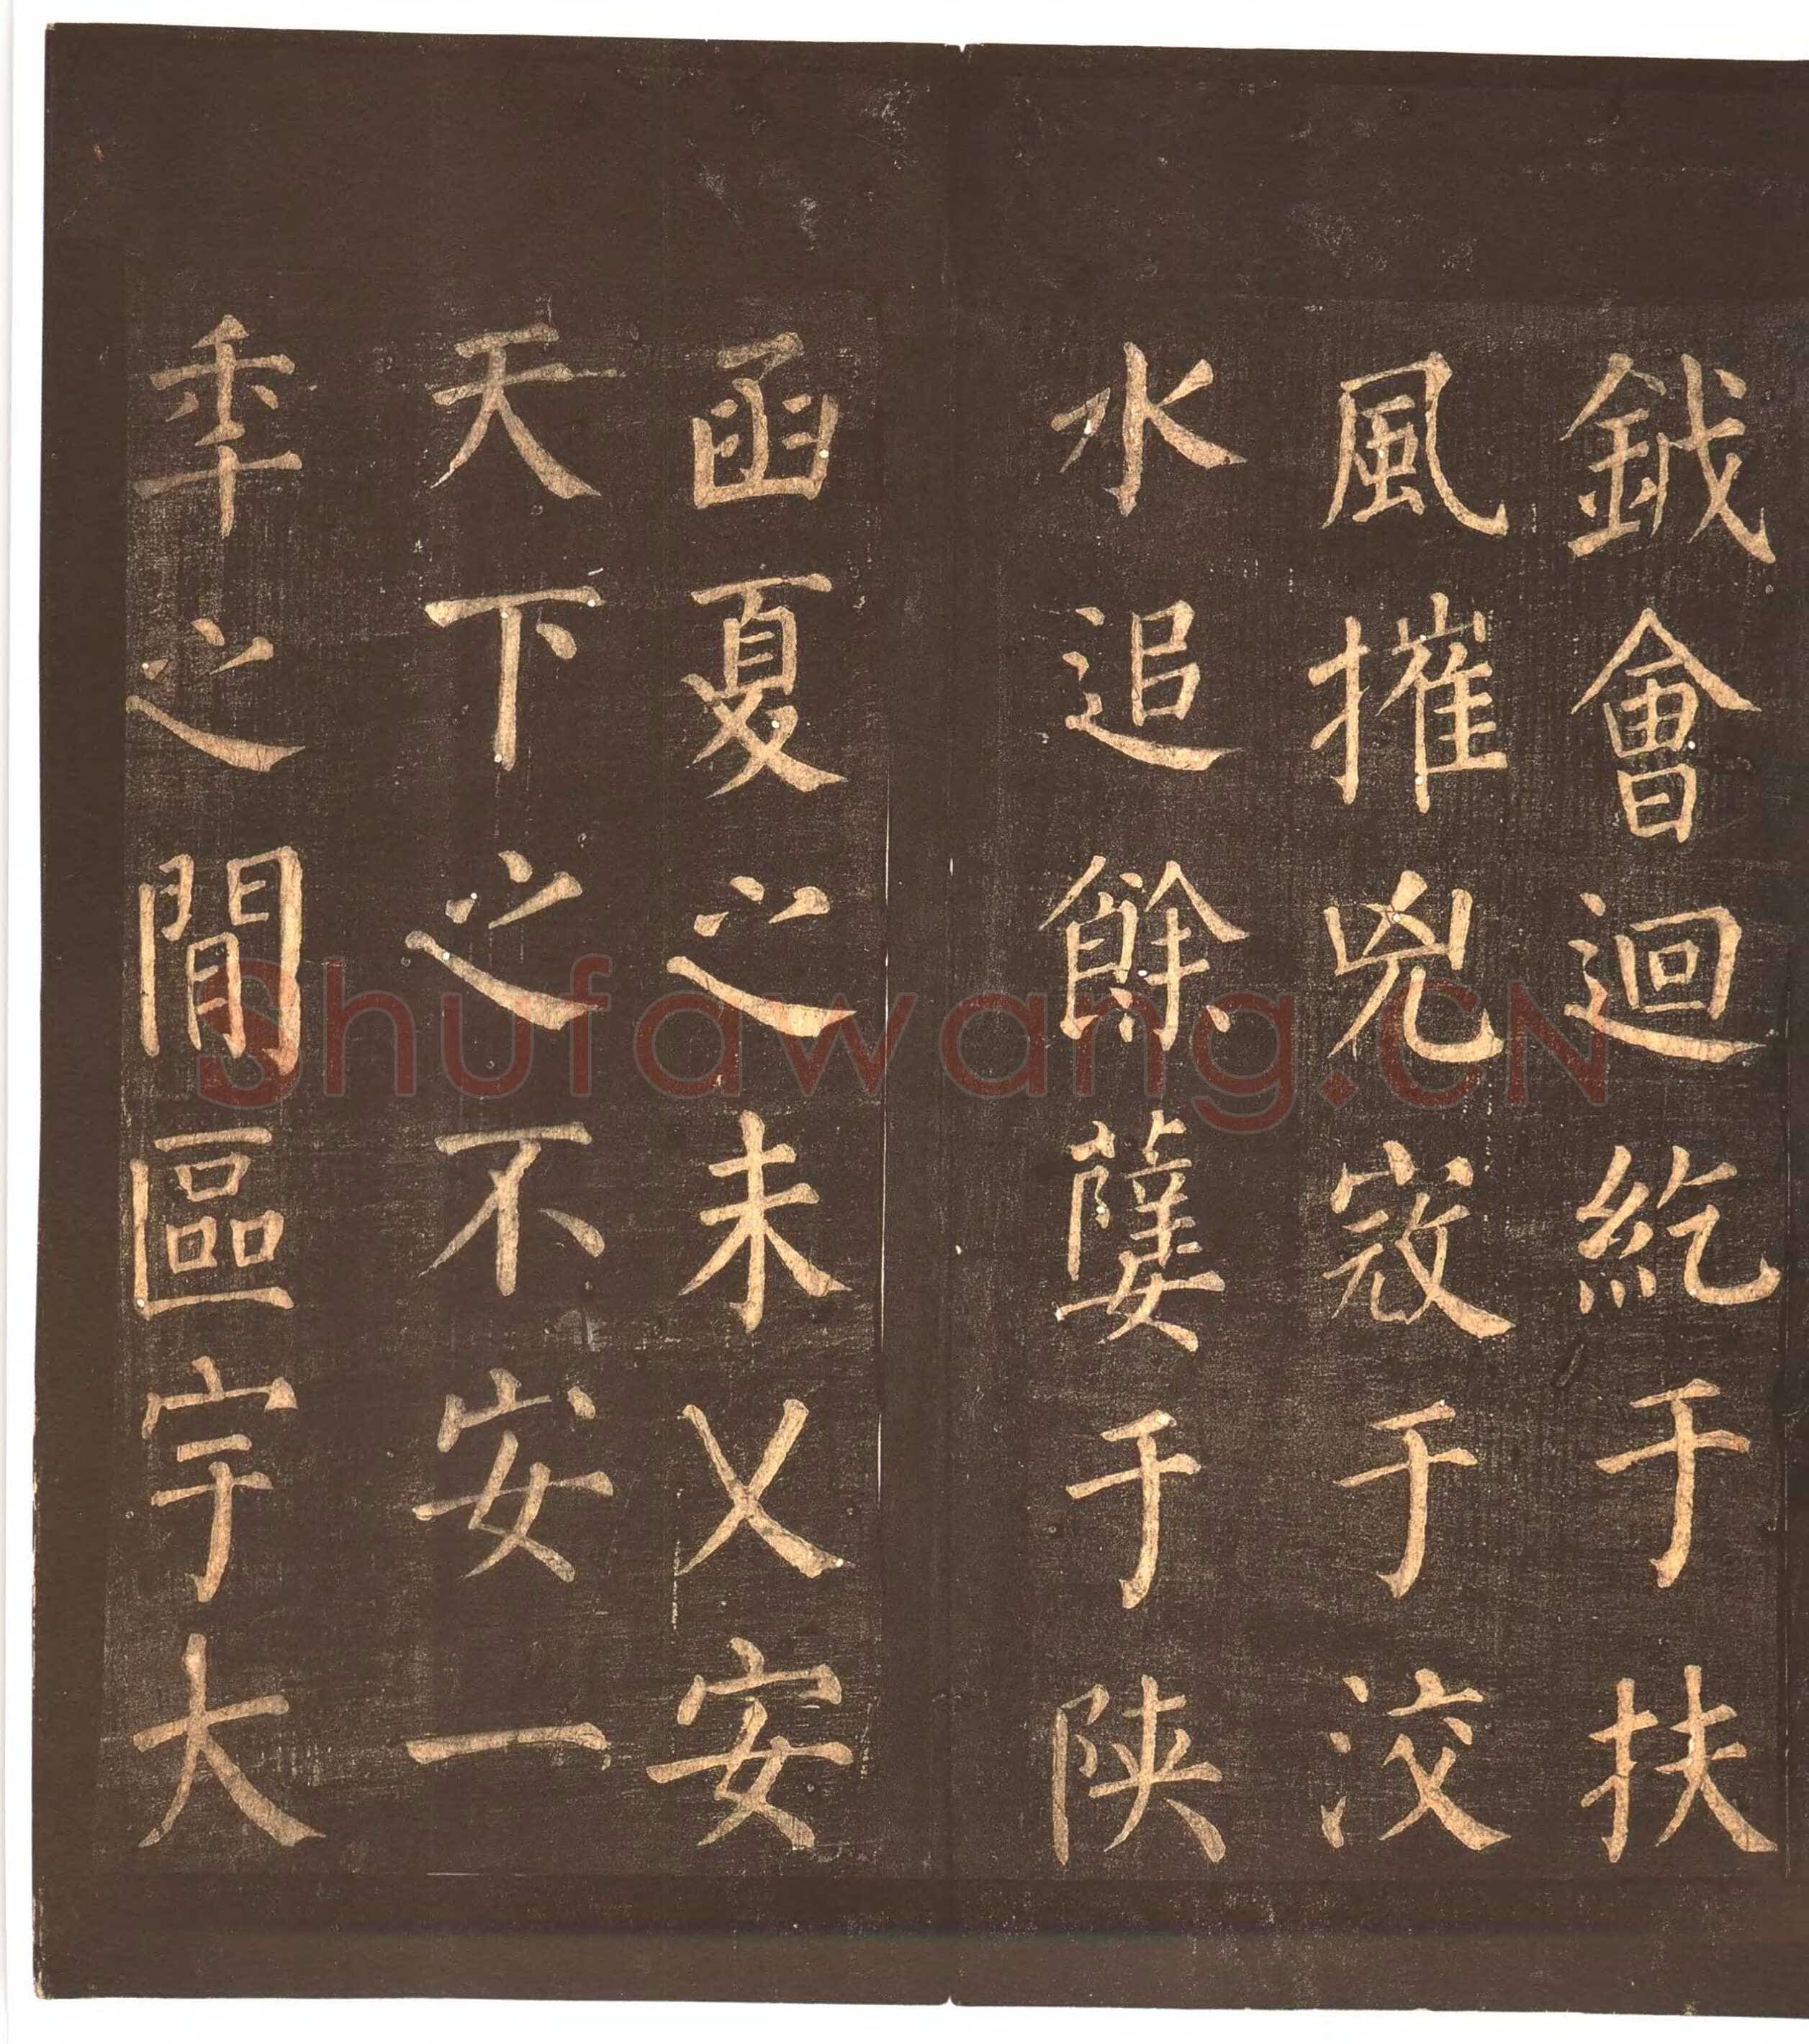 鉞會迴紇于扶
風摧兇寇于洨
水追餘孽于陝
函夏之未乂安
天下之不安一
秊之閒區宇大
Shufawang.CN